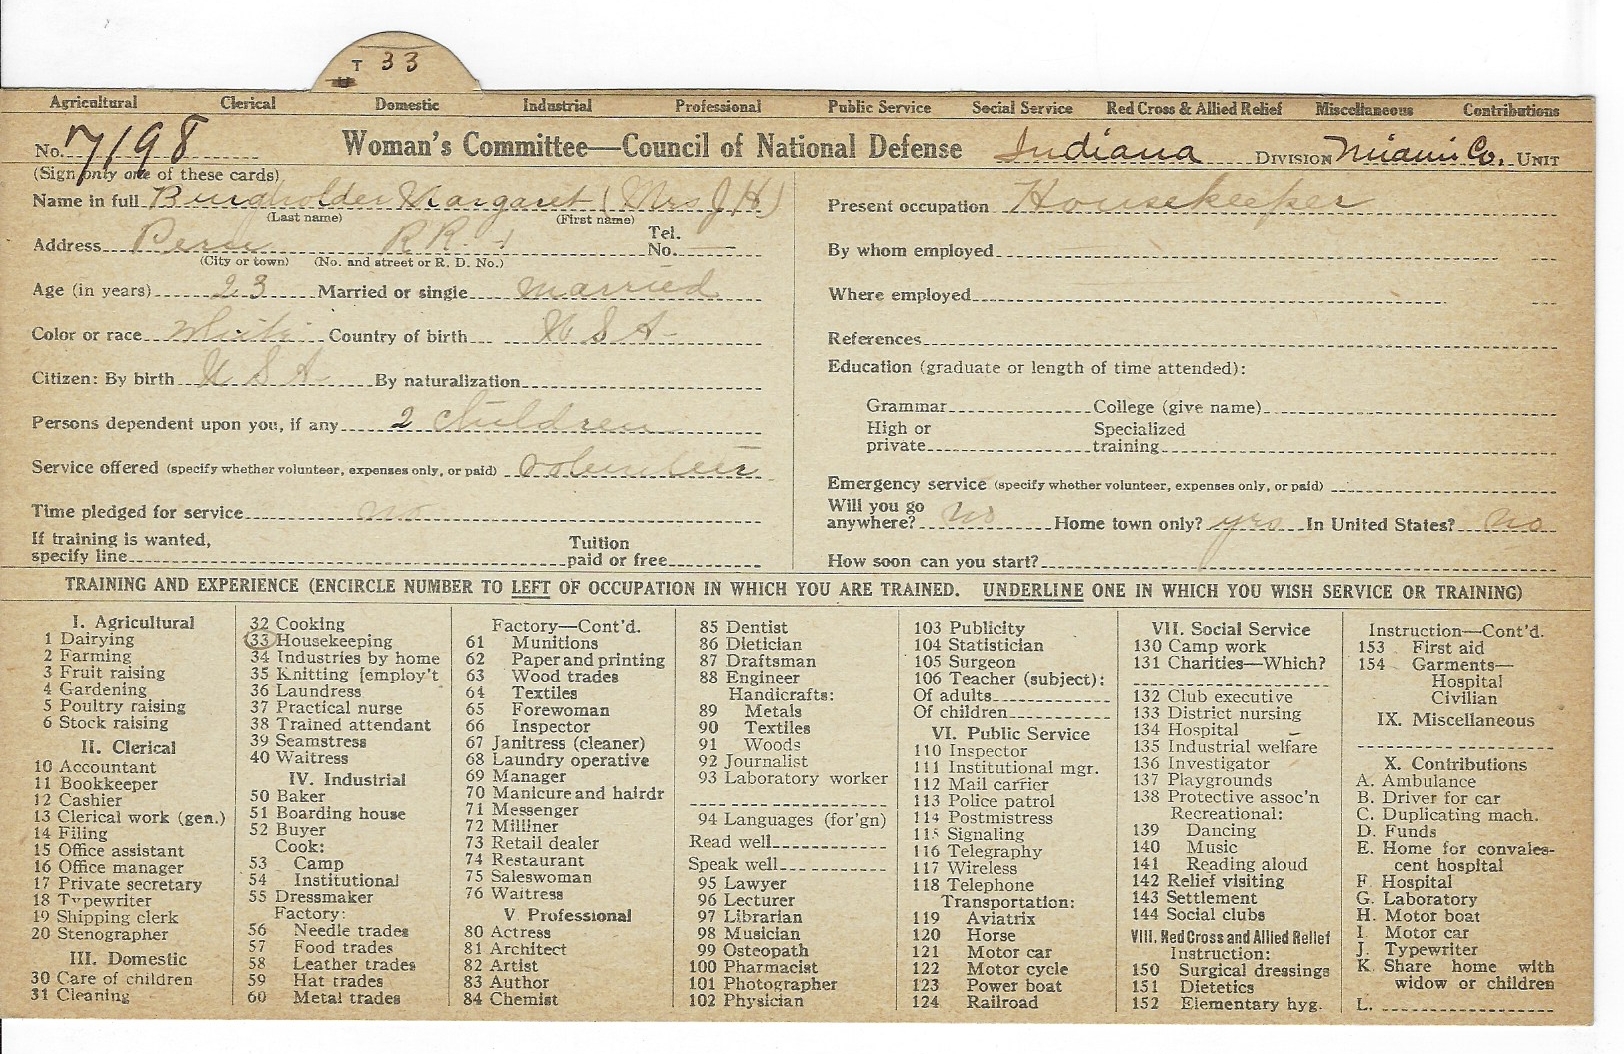 T 33
Agricultural Clerical Domestic Industrial Professional Public Service Social Service Red Cross & Allied Relief Miscellaneous Contributions
No. 7198 Woman's Committee—Council of National Defense Indiana DIVISION Miami Co. UNIT
(Sign only one of these cards)
Name in full Margaret (Mrs J H)
(Last name) (First name)
Address Peru R R 1 Tel. No.
(City or town) (No. and street or R. D. No.)
Age (in years) 23 Married or single married
Color or race White Country of birth U S A
Citizen: By birth U S A By naturalization
Persons dependent upon you, if any 2 children
Service offered (specify whether volunteer, expenses only, or paid) volunteer
Time pledged for service no
If training is wanted, specify line Tuition paid or free
Present occupation Housekeeper
By whom employed
Where employed
References
Education (graduate or length of time attended):
Grammar College (give name)
High or private Specialized training
Emergency service (specify whether volunteer, expenses only, or paid)
Will you go anywhere? no Home town only? yes In United States? no
How soon can you start?
TRAINING AND EXPERIENCE (ENCIRCLE NUMBER TO LEFT OF OCCUPATION IN WHICH YOU ARE TRAINED. UNDERLINE ONE IN WHICH YOU WISH SERVICE OR TRAINING)
I. Agricultural
1 Dairying
2 Farming
3 Fruit raising
4 Gardening
5 Poultry raising
6 Stock raising
II. Clerical
10 Accountant
11 Bookkeeper
12 Cashier
13 Clerical work (gen.)
14 Filing
15 Office assistant
16 Office manager
17 Private secretary
18 Typewriter
19 Shipping clerk
20 Stenographer
III. Domestic
30 Care of children
31 Cleaning
32 Cooking
33 Housekeeping
34 Industries by home
35 Knitting [employ't
36 Laundress
37 Practical nurse
38 Trained attendant
39 Seamstress
40 Waitress
IV. Industrial
50 Baker
51 Boarding house
52 Buyer
Cook:
53 Camp
54 Institutional
55 Dressmaker
Factory:
56 Needle trades
57 Food trades
58 Leather trades
59 Hat trades
60 Metal trades
Factory—Cont'd.
61 Munitions
62 Paper and printing
63 Wood trades
64 Textiles
65 Forewoman
66 Inspector
67 Janitress (cleaner)
68 Laundry operative
69 Manager
70 Manicure and hairdr
71 Messenger
72 Milliner
73 Retail dealer
74 Restaurant
75 Saleswoman
76 Waitress
V Professional
80 Actress
81 Architect
82 Artist
83 Author
84 Chemist
85 Dentist
86 Dietician
87 Draftsman
88 Engineer
Handicrafts:
89 Metals
90 Textiles
91 Woods
92 Journalist
93 Laboratory worker
94 Languages (for'gn)
Read well
Speak well
95 Lawyer
96 Lecturer
97 Librarian
98 Musician
99 Osteopath
100 Pharmacist
101 Photographer
102 Physician
103 Publicity
104 Statistician
105 Surgeon
106 Teacher (subject):
Of adults
Of children
VI. Public Service
110 Inspector
111 Institutional mgr.
112 Mail carrier
113 Police patrol
114 Postmistress
115 Signaling
116 Telegraphy
117 Wireless
118 Telephone
Transportation:
119 Aviatrix
120 Horse
121 Motor car
122 Motor cycle
123 Power boat
124 Railroad
VII. Social Service
130 Camp work
131 Charities—Which?
132 Club executive
133 District nursing
134 Hospital
135 Industrial welfare
136 Investigator
137 Playgrounds
138 Protective assoc'n
Recreational:
139 Dancing
140 Music
141 Reading aloud
142 Relief visiting
143 Settlement
144 Social clubs
VIII. Red Cross and Allied Relief
Instruction:
150 Surgical dressings
151 Dietetics
152 Elementary hyg.
Instruction—Cont'd.
153 First aid
154 Garments—
Hospital
Civilian
IX. Miscellaneous
X. Contributions
A. Ambulance
B. Driver for car
C. Duplicating mach.
D. Funds
E. Home for convales-
cent hospital
F. Hospital
G. Laboratory
H. Motor boat
I. Motor car
J. Typewriter
K. Share home with
widow or children
L.